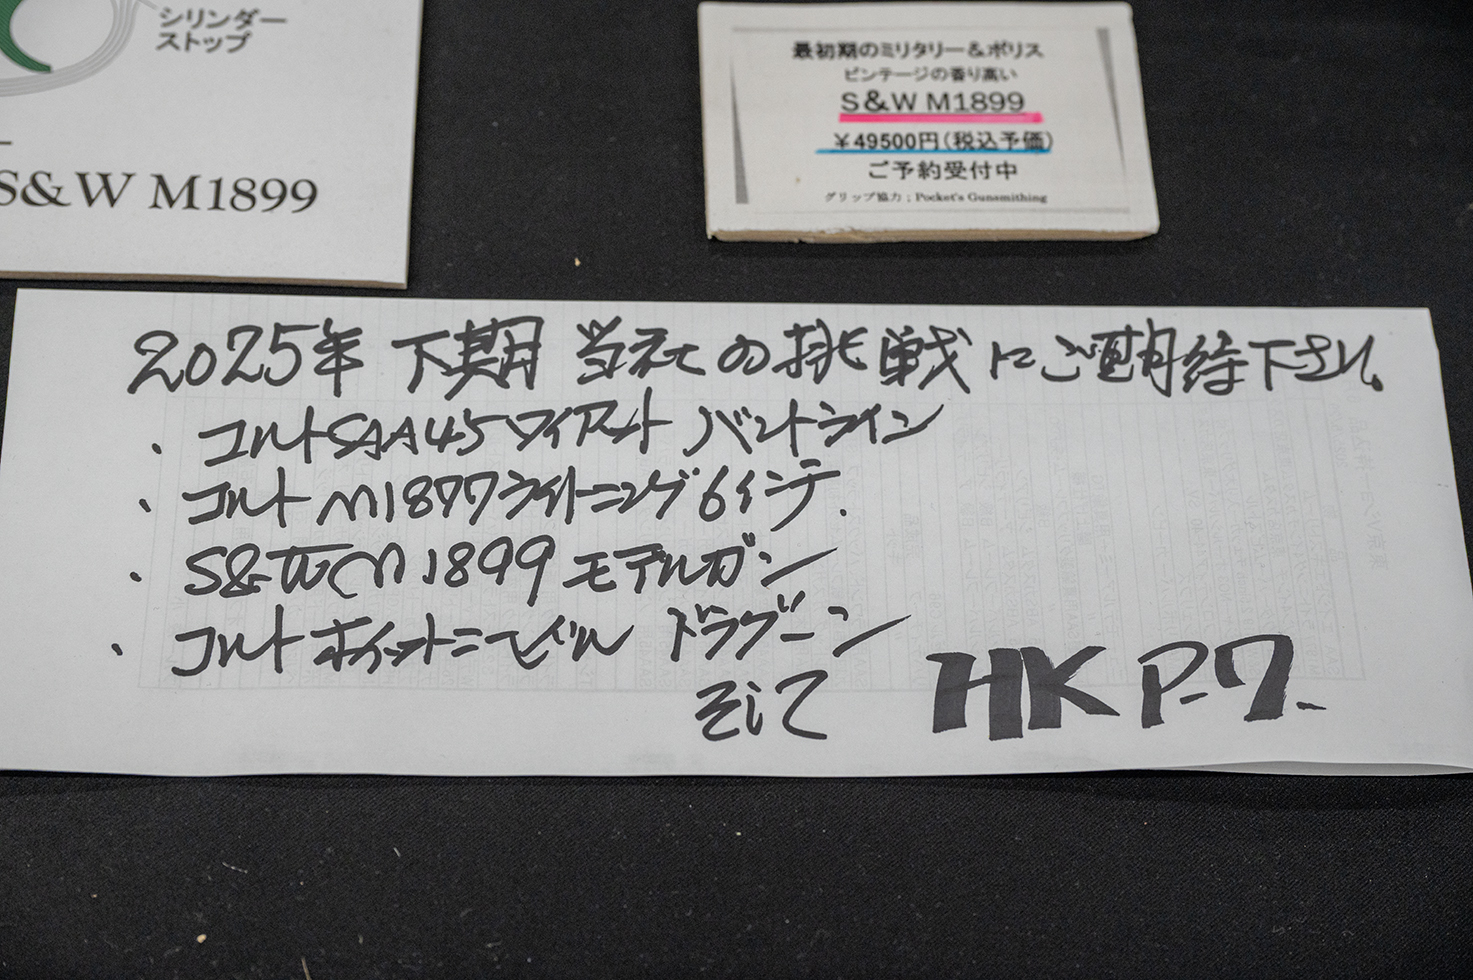 シリンダー
ストップ
S&W M1899
最初期のミリタリー&ポリス
ビンテージの香り高い
S&W M1899
￥49500円(税込予価)
ご予約受付中
グリップ協力；Pocket's Gunsmithing
2025年 下期 当社の挑戦にご期待下さい。
・コルトSAA45ワイアット バントライン
・コルト M1877ライトニング6インチ.
・S&W M1899 モデルガン
・コルト ホイットニービル ドラグーン
そして HK P-7.